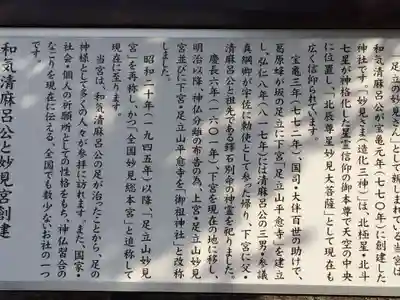 足立の妙見さんとして親しまれている当宮は
和気清麻呂公が宝亀元年(七七〇年)に創建した
神社です。「妙見さま造化三神」は、北極星・北斗
七星が神格化した星霊信仰の御本尊で天空の中央
に位置し、「北辰尊星妙見大菩薩」として現在も
広く信仰されています。
宝亀三年(七七二年)、国司・大伴百世の助けで、
葛原峰が坂の足立に下宮「足立山平愈寺」を建立
し、弘仁八年(八一七年)には清麻呂公の三男・参議
真綱卿が宇佐に勅使として参った帰り、下宮に父・
清麻呂公と祖先である鐸石別命の神霊を祀りました。
慶長六年(一六〇一年)、下宮を現在の地に移し、
明治以降、神仏分離の布告の為、上宮・足立山妙見
宮並びに下宮・足立山平愈寺を「御祖神社」と改称
しました。
昭和二十年(一九四五年)以降、「足立山妙見
宮」を再称し、かつ「全国妙見総本宮」と追称して
現在に至ります。
当宮は、和気清麻呂公の足が治ったことから、足の
神様として多くの人々が参拝に訪れます。また、国家・
社会・個人の祈願所としての性格をもち、神仏習合の
なごりを現在に伝える、全国でも数少ないお社の一つ
です。
和気清麻呂公と妙見宮創建